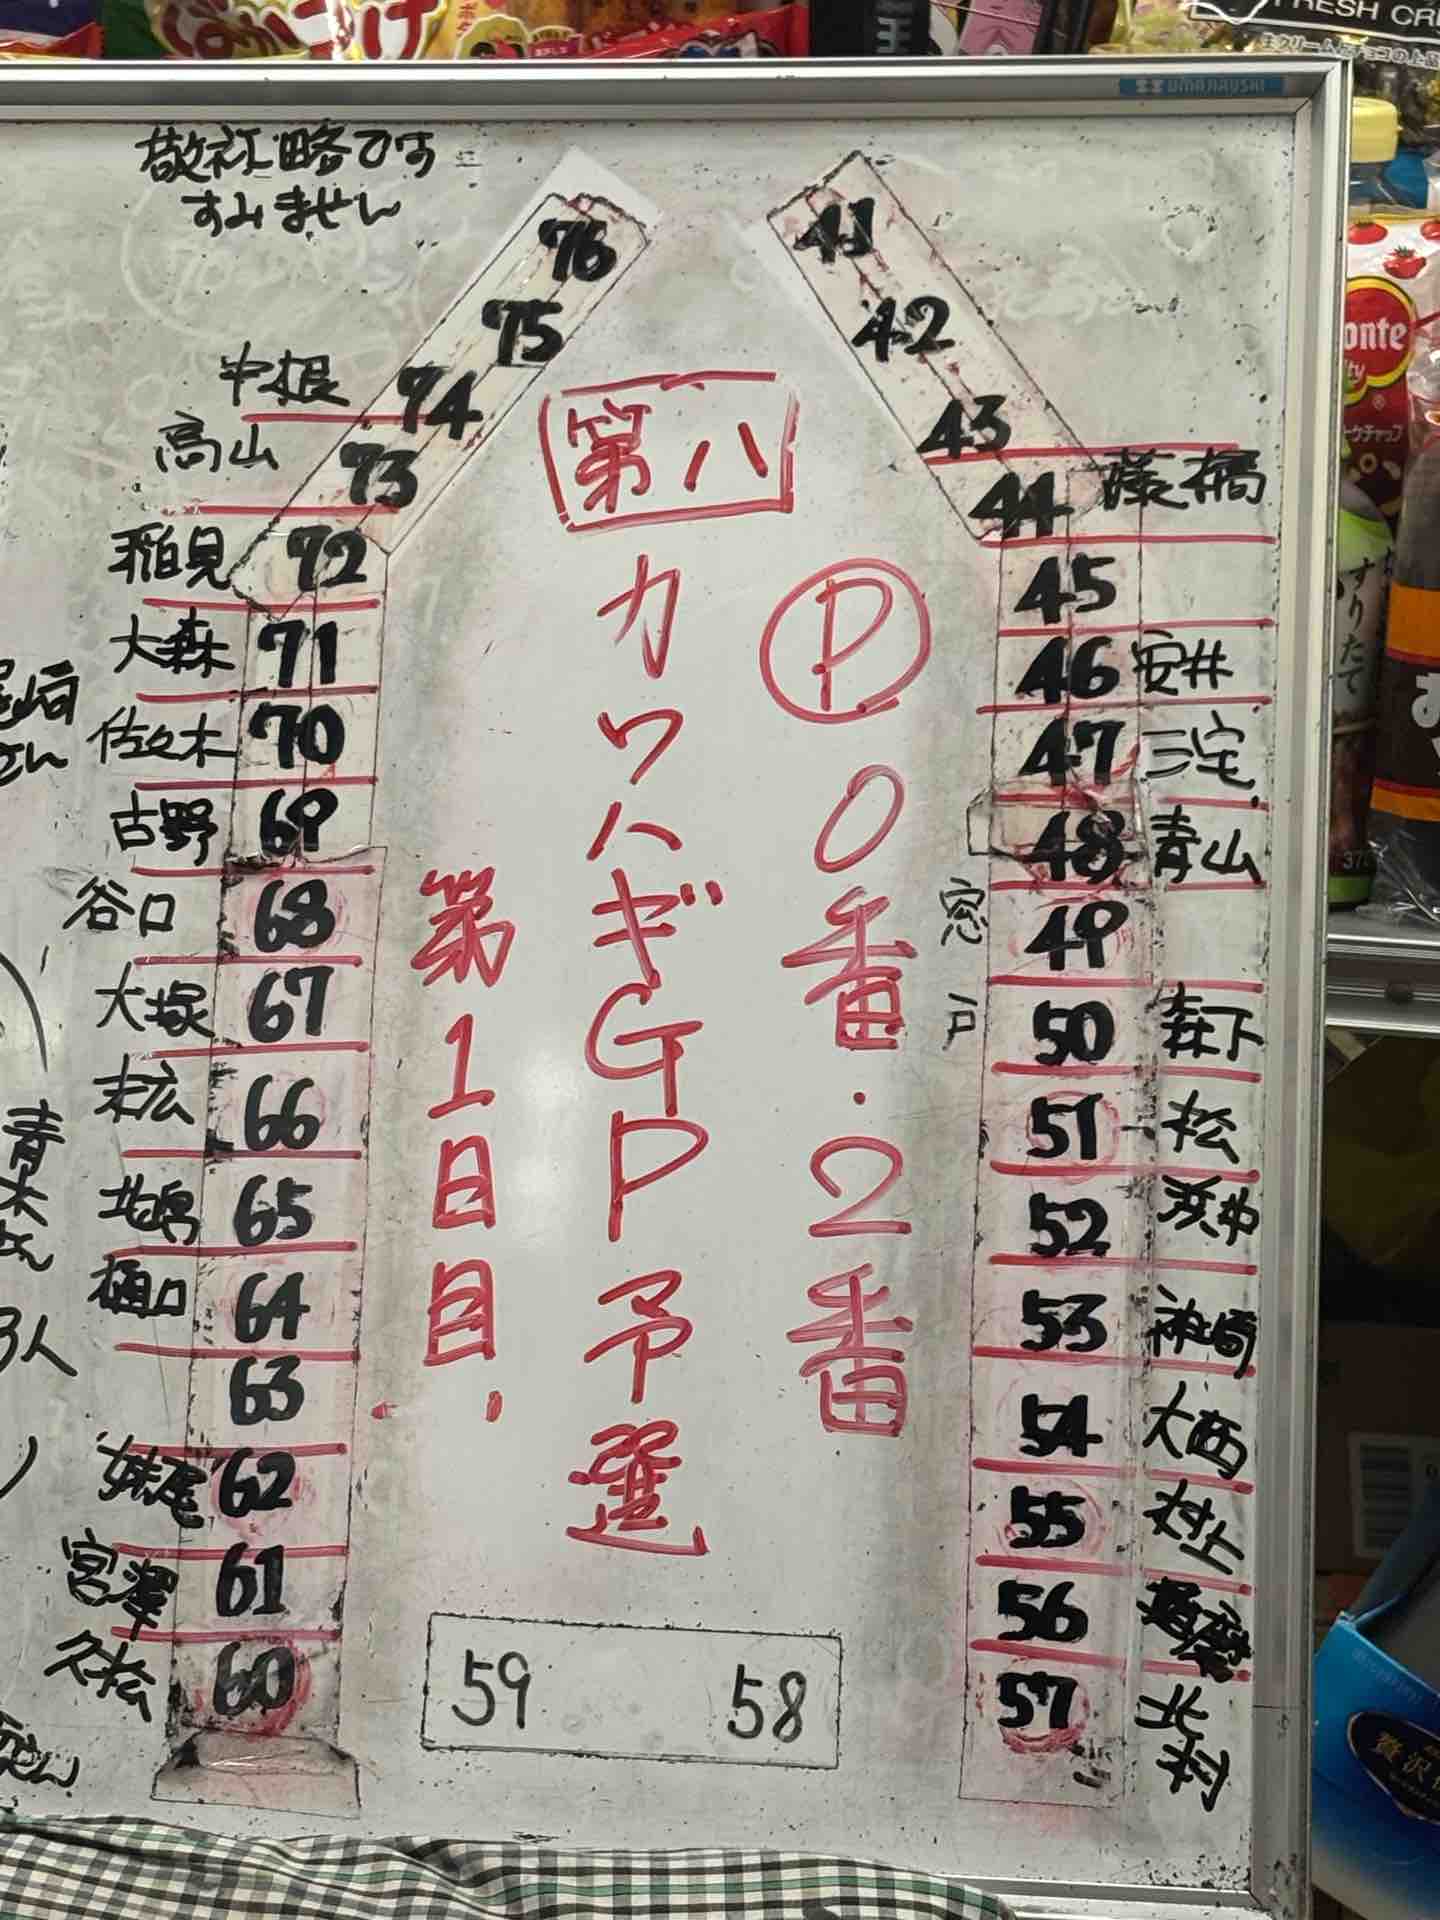 敬称略です
すみません
76
75
中根 74
高山 73
稲見 72
大森 71
佐々木 70
古野 69
谷口 68
大塚 67
末広 66
北島 65
樋口 64
63
妹尾 62
宮澤 61
久松 60
第八
カワハギGP予選
第1日目
Ⓟ0番・2番
59 58
41
42
43
44 藤橋
45
46 安井
47 三宅
48 青山
49
窓戸
50 森下
51 松
52 浜中
53 神崎
54 大西
55 村上
56
57 北村
尾崎
さん
青木
さん
3人
FRESH CR
生クリーム
すりたて
贅沢